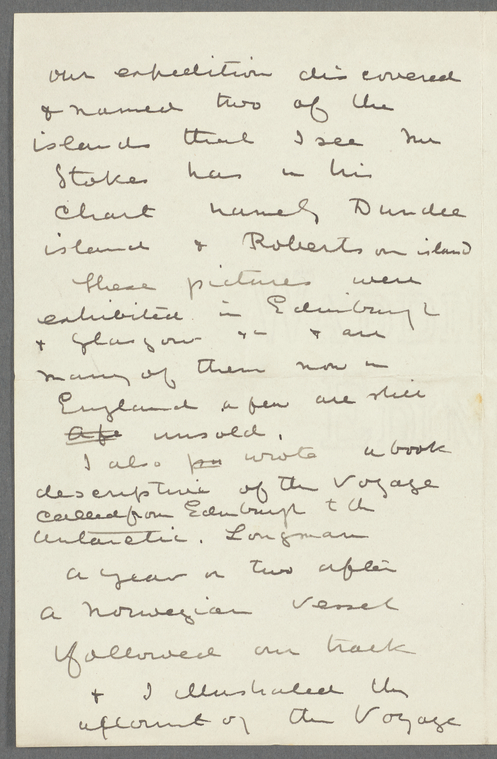 our expedition discovered
& named two of the
islands that I see Mr
Stokes has in his
chart namely Dundee
island & Robertson island
these pictures were
exhibited in Edinburgh
& Glasgow & are
many of them now in
England a few are still
unsold.
I also wrote a book
descriptive of the Voyage
called from Edinburgh t the
Antarctic. Longman
a year or two after
a Norwegian Vessel
followed our track
& I illustrated the
account of the Voyage